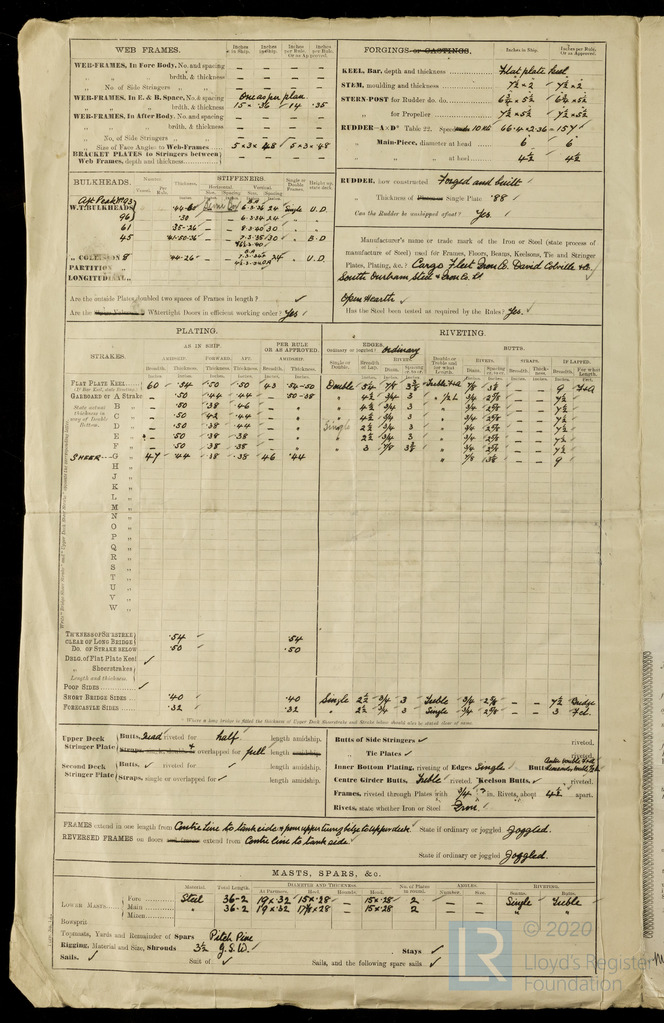 WEB FRAMES.
Inches in Ship. Inches in Ship. Inches per Rule, Or as Approved. Inches per Rule,
WEB-FRAMES, In Fore Body, No. and spacing — — — —
" " brdth, & thickness — — — —
" No. of Side Stringers " — — — —
WEB-FRAMES, In E. & B. Space, No. & spacing One as per plan
" " brdth, & thickness 15 × .36 14 .35
WEB-FRAMES, In After Body, No. and spacing — — — —
" " brdth, & thickness — — — —
" No. of Side Stringers " — — — —
" Size of Face Angles to Web-Frames 5 × 3 × .48 5 × 3 × .48
BRACKET PLATES to Stringers between Web Frames, depth and thickness — — — —
FORGINGS or CASTINGS.
Inches in Ship. Inches per Rule, Or as Approved.
KEEL, Bar, depth and thickness Flat plate keel
STEM, moulding and thickness 7½ × 2 7½ × 2
STERN-POST for Rudder do. do. 6¾ × 5½ 6¾ × 5½
" for Propeller 7½ × 5½ 7½ × 5½
RUDDER—A×D² Table 22. Speed 10 Kts 66.4 × 2.36 = 157
" Main-Piece, diameter at head 6 6
" " at heel 4½ 4½
RUDDER, how constructed Forged and built
" Thickness of Single Plate .88
Can the Rudder be unshipped afloat? Yes.
BULKHEADS.
STIFFENERS.
Thickness. Horizontal. Vertical. Single or Double Frames. Height up, state deck.
Aft Peak No 103
W.T. BULKHEADS 6·3·36 24 Single U.D.
96 .30 — — 6·3·34 24 " "
61 .35-.26 — — 30 " "
45 — — 30 " B.D
" COLLISION 8 .44-.26 — — 24 " U.D.
PARTITION
LONGITUDINAL
Are the outside Plates doubled two spaces of Frames in length? ✓
Are the Watertight Doors in efficient working order? Yes ✓
Manufacturer's name or trade mark of the Iron or Steel (state process of
manufacture of Steel) used for Frames, Floors, Beams, Keelsons, Tie and Stringer
Plates, Plating, &c.? Cargo Fleet Iron Co. David Colville & Co.
South Durham Steel & Iron Co. Ld
Open Hearth ✓
Has the Steel been tested as required by the Rules? Yes. ✓
PLATING.
RIVETING.
STRAKES. AS IN SHIP. PER RULE OR AS APPROVED. EDGES. Ordinary or joggled? Ordinary BUTTS.
AMIDSHIP. FORWARD. AFT. AMIDSHIP. RIVETS. STRAPS. IF LAPPED.
Breadth. Thickness. Thickness. Thickness. Breadth. Thickness.
FLAT PLATE KEEL 60 .54 .50 .50 43 .54-.50 Double 5¼ ⅞ 3½ Treble F&A ⅞ 3⅛ — — 9 F&A
GARBOARD or A Strake — .50 .44 .44 — .50-.38 " 4½ ¾ 3 " ½ L ¾ 2⅝ — — 7½
B " — .50 .38 .46 " 4½ ¾ 3 " ¾ 2⅝ — — 7½
C " — .50 .42 .44 " 4½ ¾ 3 " ¾ 2⅝ — — 7½
D " — .50 .38 .44 Single 2½ ¾ 3 " ¾ 2⅝ — — 7½
E " — .50 .38 .38 " 2½ ¾ 3 " ¾ 2⅝ — — 7½
F " — .50 .38 .38 " 3 ⅞ 3½ " ¾ 2⅝ — — 7½
SHEER G " 47 .44 .38 .38 46 .44 " ⅞ 3⅛ — — 9
H "
J "
K "
L "
M "
N "
O "
P "
Q "
R "
S "
T "
U "
V "
W "
THICKNESS OF SHEERSTRAKE CLEAR OF LONG BRIDGE .54 .54
DO. OF STRAKE BELOW .50 .50
DBLG. of Flat Plate Keel ✓
" Sheerstrakes
Length and thickness
POOP SIDES ✓
SHORT BRIDGE SIDES .40 .40 Single 2½ ¾ 3 Treble ¾ 2⅝ — — 7½ Bridge
FORECASTLE SIDES .32 .32 " 2½ ¾ 3 Single ¾ 2⅝ — — 3 Fcl.
Where a long bridge is fitted the thickness of Upper Deck Sheerstrake and Strake below should also be stated clear of same.
Upper Deck Stringer Plate Butts, Quad riveted for half length amidship.
Straps, single, double, & overlapped for full length amidship
Second Deck Stringer Plate Butts, ✓ riveted for ✓ length amidship.
Straps, single or overlapped for ✓ length amidship.
Butts of Side Stringers ✓ riveted.
" Tie Plates ✓ riveted.
Inner Bottom Plating, riveting of Edges Single Butts
Centre Girder Butts, Treble riveted. Keelson Butts, ✓ riveted.
Frames, riveted through Plates with ¾ in. Rivets, about 4½ apart.
Rivets, state whether Iron or Steel Iron
FRAMES extend in one length from Centre line to tank side & from upper turn of bilge to upper deck. State if ordinary or joggled Joggled.
REVERSED FRAMES on floors extend from Centre line to tank side.
State if ordinary or joggled Joggled.
MASTS, SPARS, &c.
Material. Total Length. DIAMETER AND THICKNESS. No. of Plates in round. ANGLES. RIVETING.
At Partners. Heel. Hounds. Head. Number. Size. Seams. Butts.
LOWER MASTS Fore Steel 36-2 19 × .32 15 × .28 — 15 × .28 2 — — Single Treble
Main " 36-2 19 × .32 × .28 — 15 × .28 2 — — " "
Mizen
Bowsprit
Topmasts, Yards and Remainder of Spars Pitch Pine
Rigging, Material and Size, Shrouds 3½ G.S.W. Stays ✓
Sails. ✓ Suit of ✓ Sails, and the following spare sails ✓
© 2020
LR
Lloyd's Register
Foundation